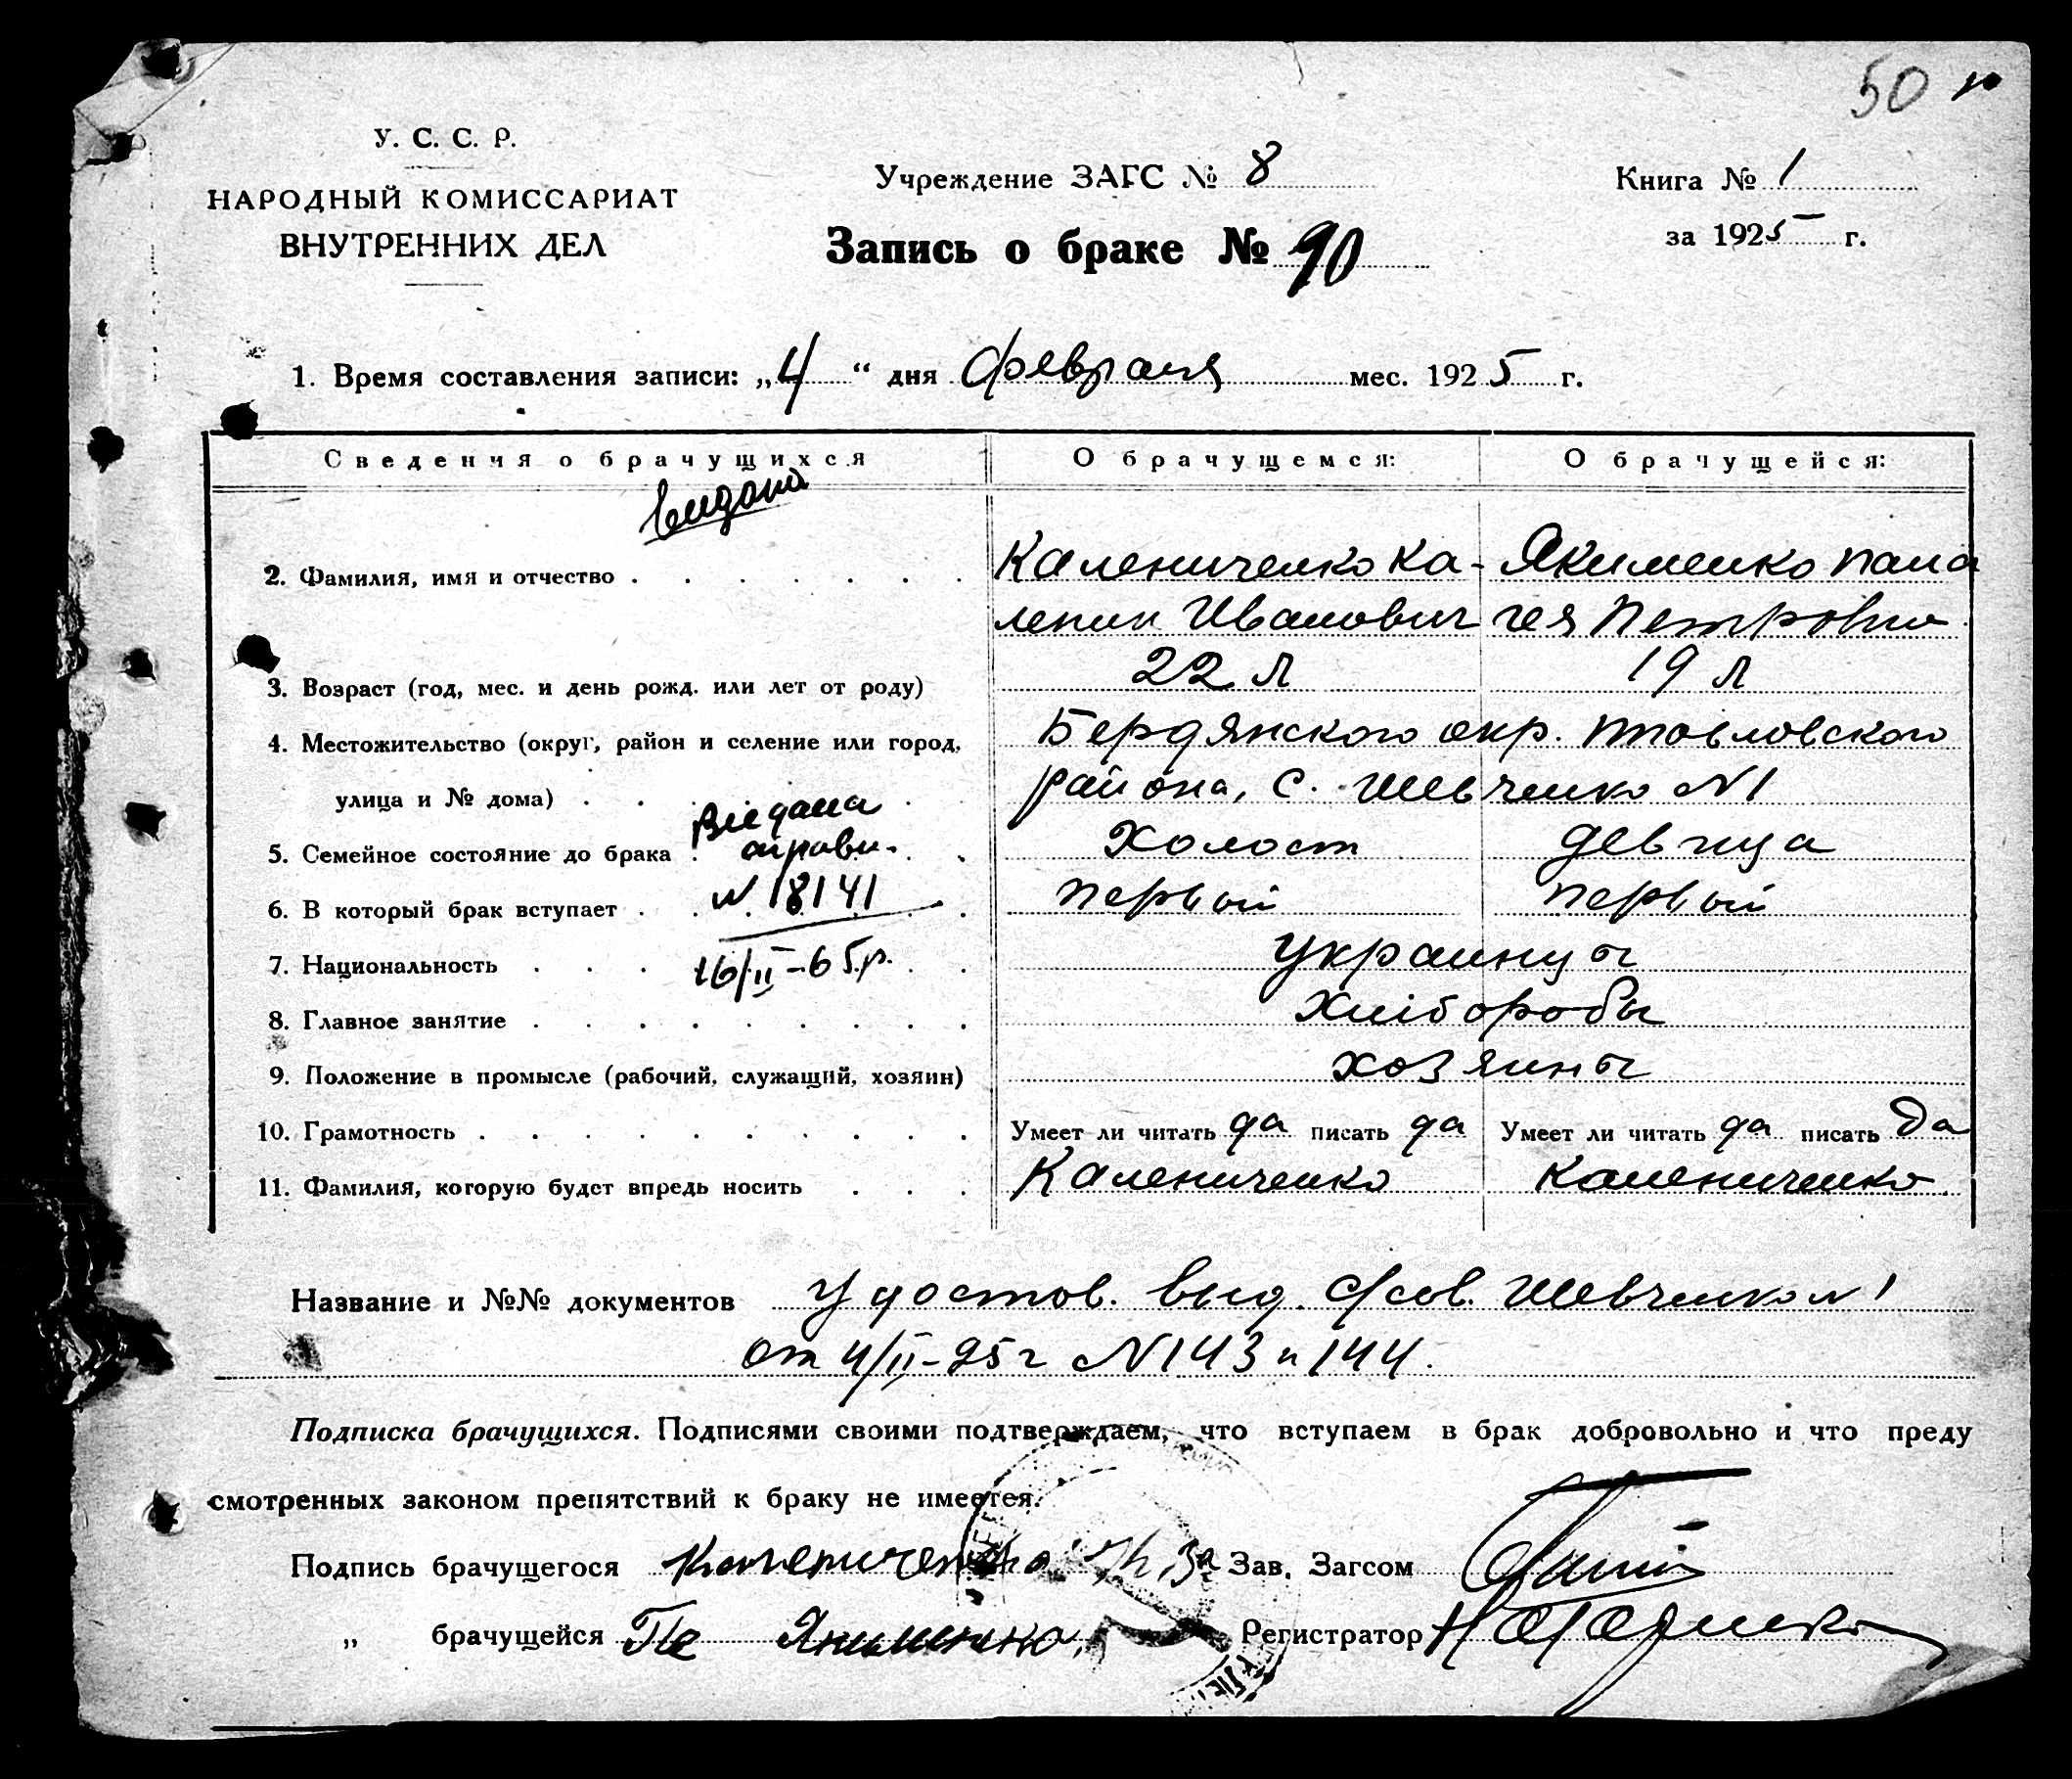 50
У. С. С. Р.
НАРОДНЫЙ КОМИССАРИАТ
ВНУТРЕННИХ ДЕЛ
Учреждение ЗАГС № 8
Запись о браке № 90
Книга № 1
за 1925 г.
1. Время составления записи: „4“ дня февраля мес. 1925 г.
Сведения о брачущихся О брачущемся: О брачущейся:
видана
2. Фамилия, имя и отчество Калениченко Ка- Якименко Пала
леник Иванович гея Петровна
3. Возраст (год, мес. и день рожд. или лет от роду) 22 л 19 л
4. Местожительство (округ, район и селение или город, Бердянского окр. Павловского
улица и № дома) района, с. Шевченко N1
Видана
5. Семейное состояние до брака Холост девица
справи.
6. В который брак вступает первый первый
N 18141
7. Национальность украинцы
16/II-65р.
8. Главное занятие Хлібороби
9. Положение в промысле (рабочий, служащий, хозяин) хозяины
10. Грамотность Умеет ли читать да писать да Умеет ли читать да писать Да
11. Фамилия, которую будет впредь носить Калениченко Калениченко
Название и №№ документов Удостов. выд. С/сов. Шевченко N 1
от 4/II-25г N143 и 144.
Подписка брачущихся. Подписями своими подтверждаем, что вступаем в брак добровольно и что преду
смотренных законом препятствий к браку не имеется.
Подпись брачущегося Калениченко За Зав. Загсом
„ брачущейся Па Якименко Регистратор